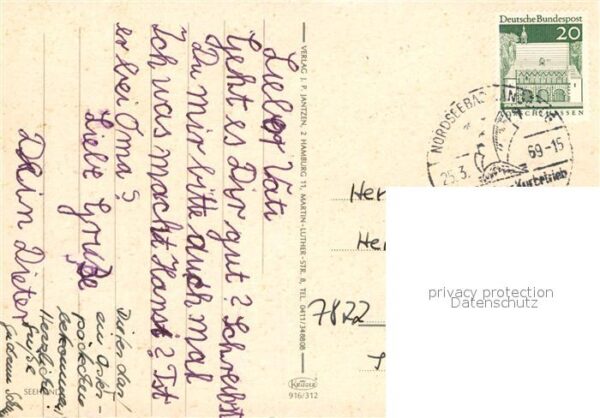 Lieber Vati
Geht es Dir gut? Schreibst
Du mir bitte auch mal
Ich was macht Hansi? Ist
er bei Oma?
Liebe Grüße
Dein Dieter
Dieter das/
ein Oster-
päckchen
bekommen.
Herzliche
Grüße
SEEHUND
VERLAG J. P. JANTZEN, 2 HAMBURG 11, MARTIN-LUTHER-STR. 8, TEL. 0411/348808
KRÜGER
916/312
Deutsche Bundespost
20
LORSCH/HESSEN
NORDSEEBAD
25.3.
69-15
Kurbetrieb
Her
He
7822
privacy protection
Datenschutz